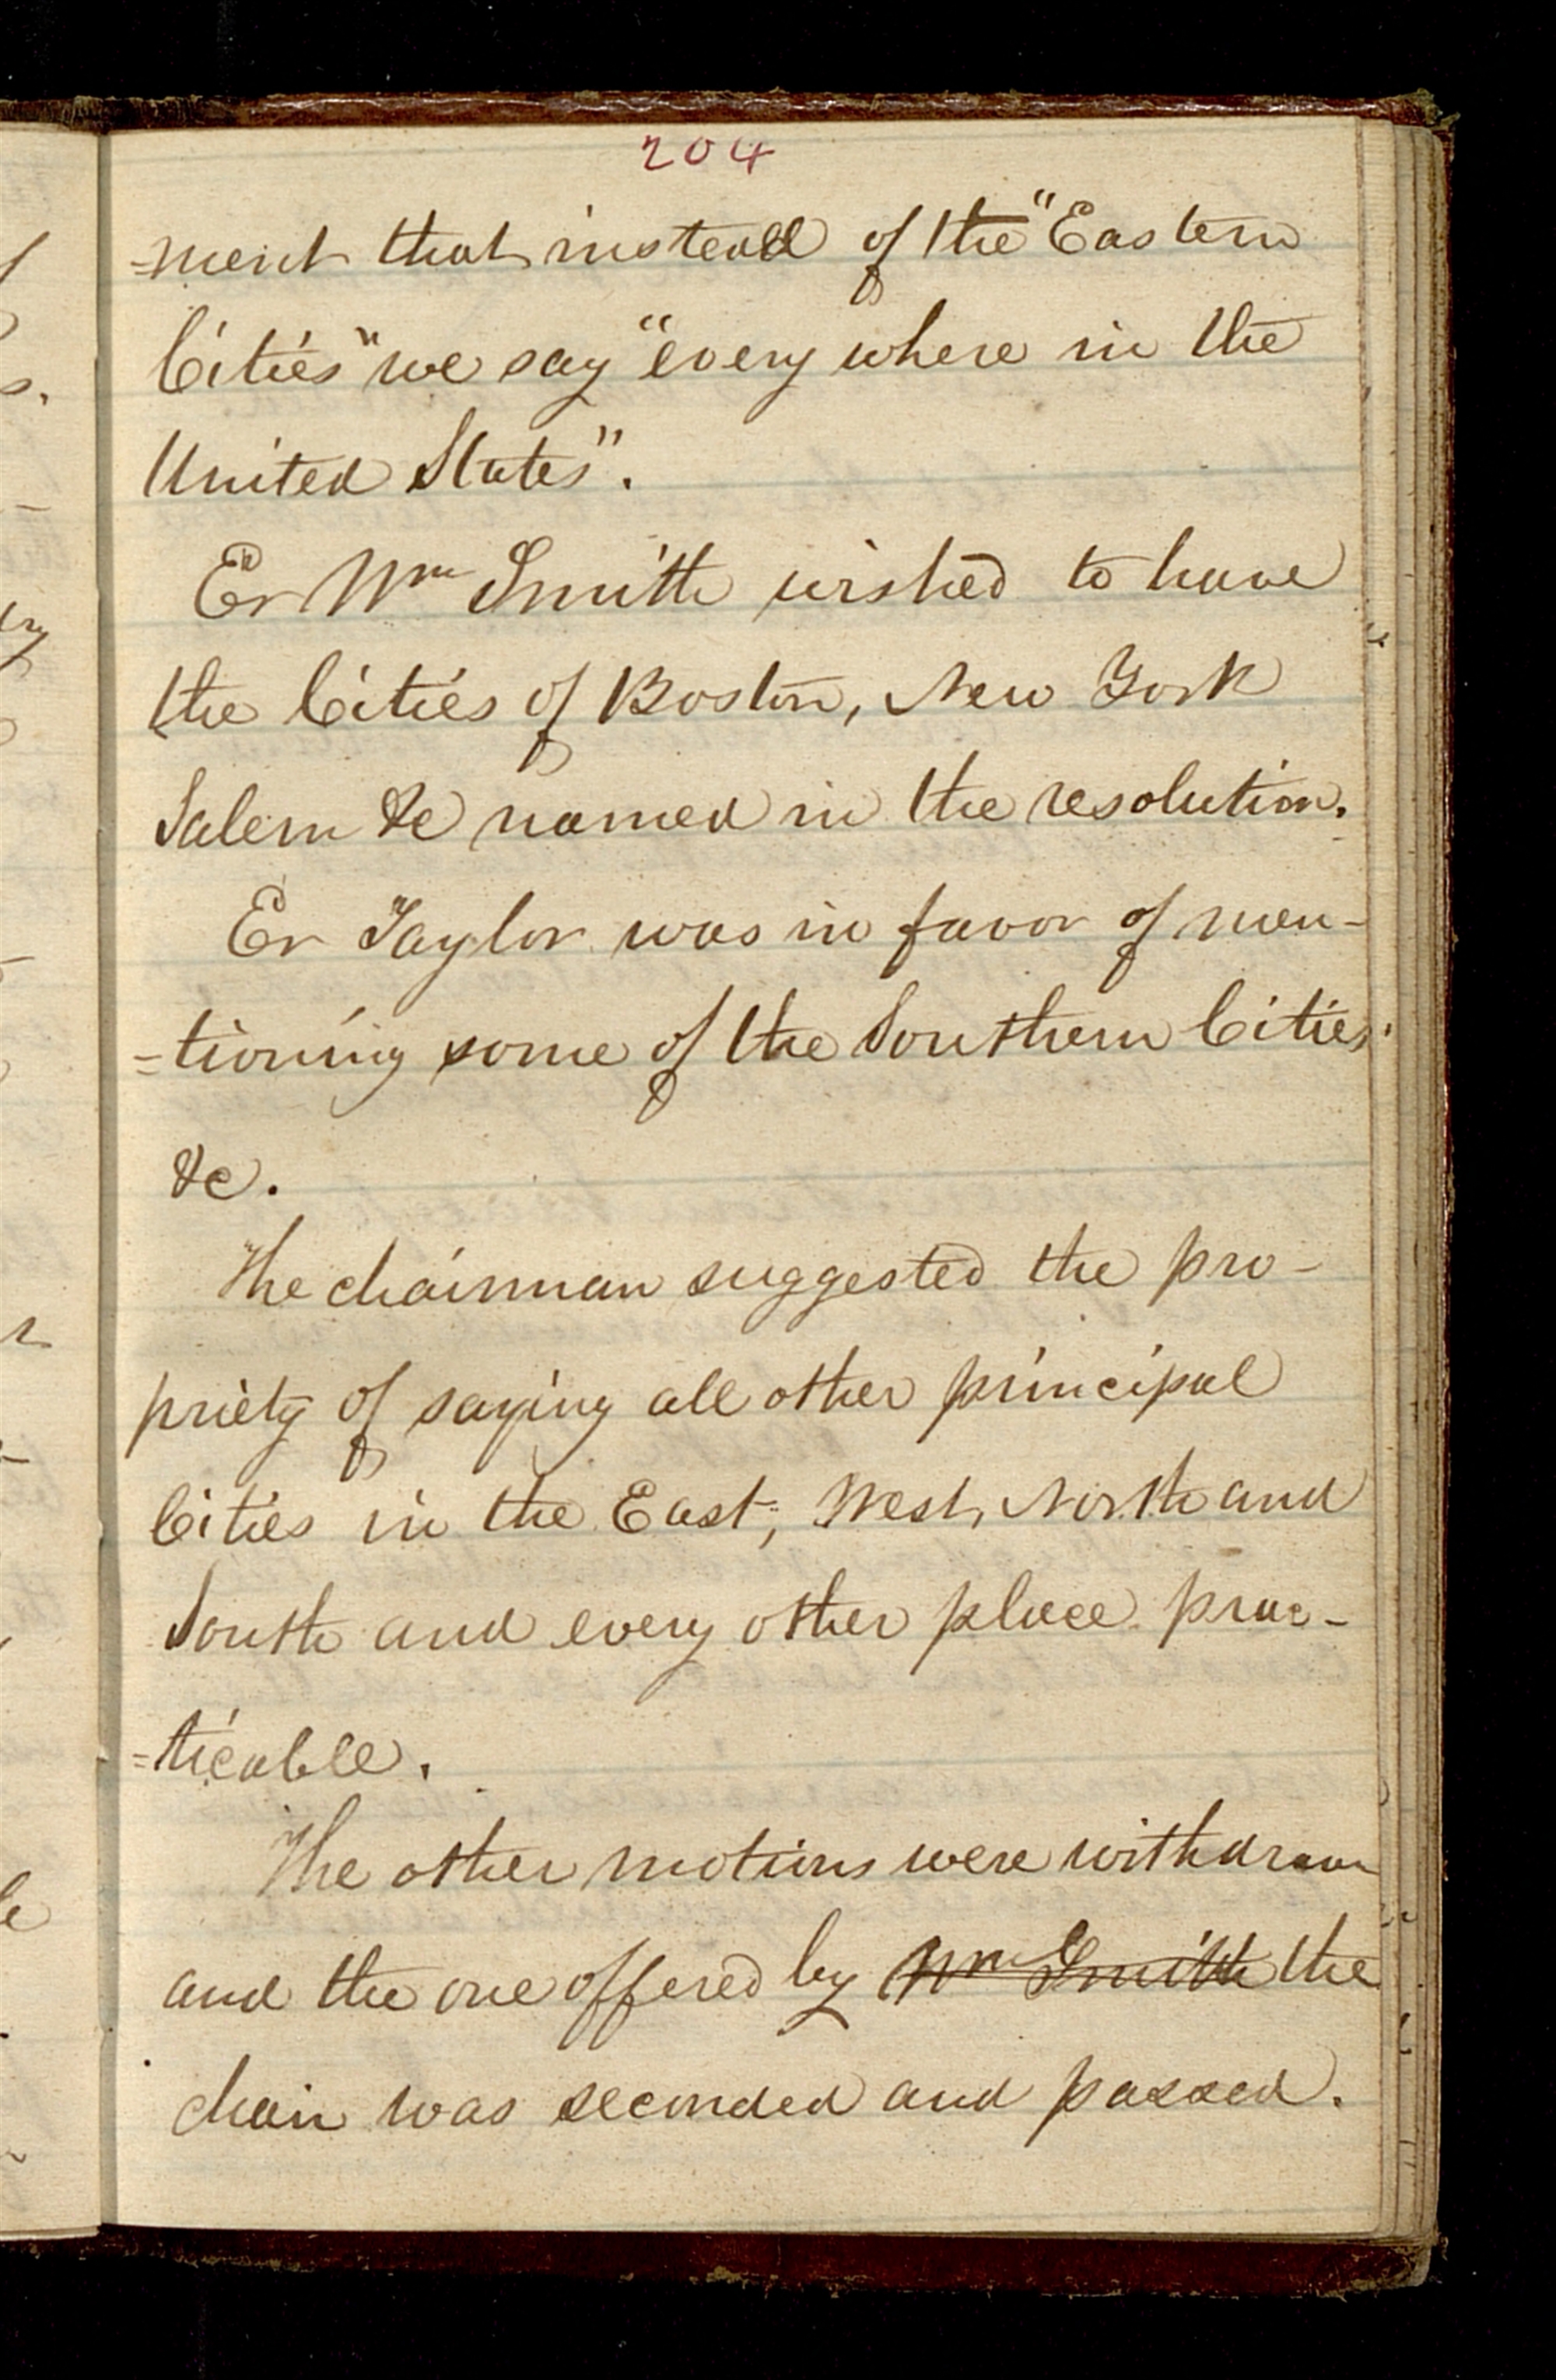 204
=ment that instead of the "Eastern
Cities" we say "every where in the
United States".
Er Wm Smith wished to have
the Cities of Boston, New York
Salem &c named in the resolution.
Er Taylor was in favor of men-
=tioning some of the Southern Cities.
&c.
The chairman suggested the pro-
priety of saying all other principal
Cities in the East, West, North and
South and every other place prac-
=ticable.
The other motions were withdrawn
and the one offered by Wm Smith the
chair was seconded and passed.